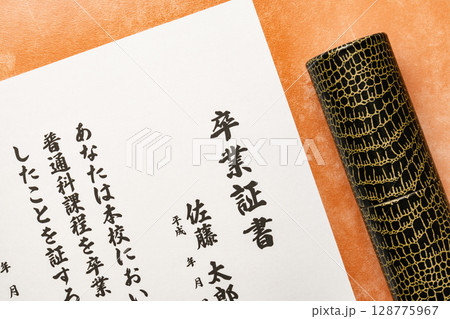 卒業証書
佐藤 太郎
平成 年 月
あなたは本校におい
普通科課程を卒業
したことを証する
年 月
PIXTA
128775967